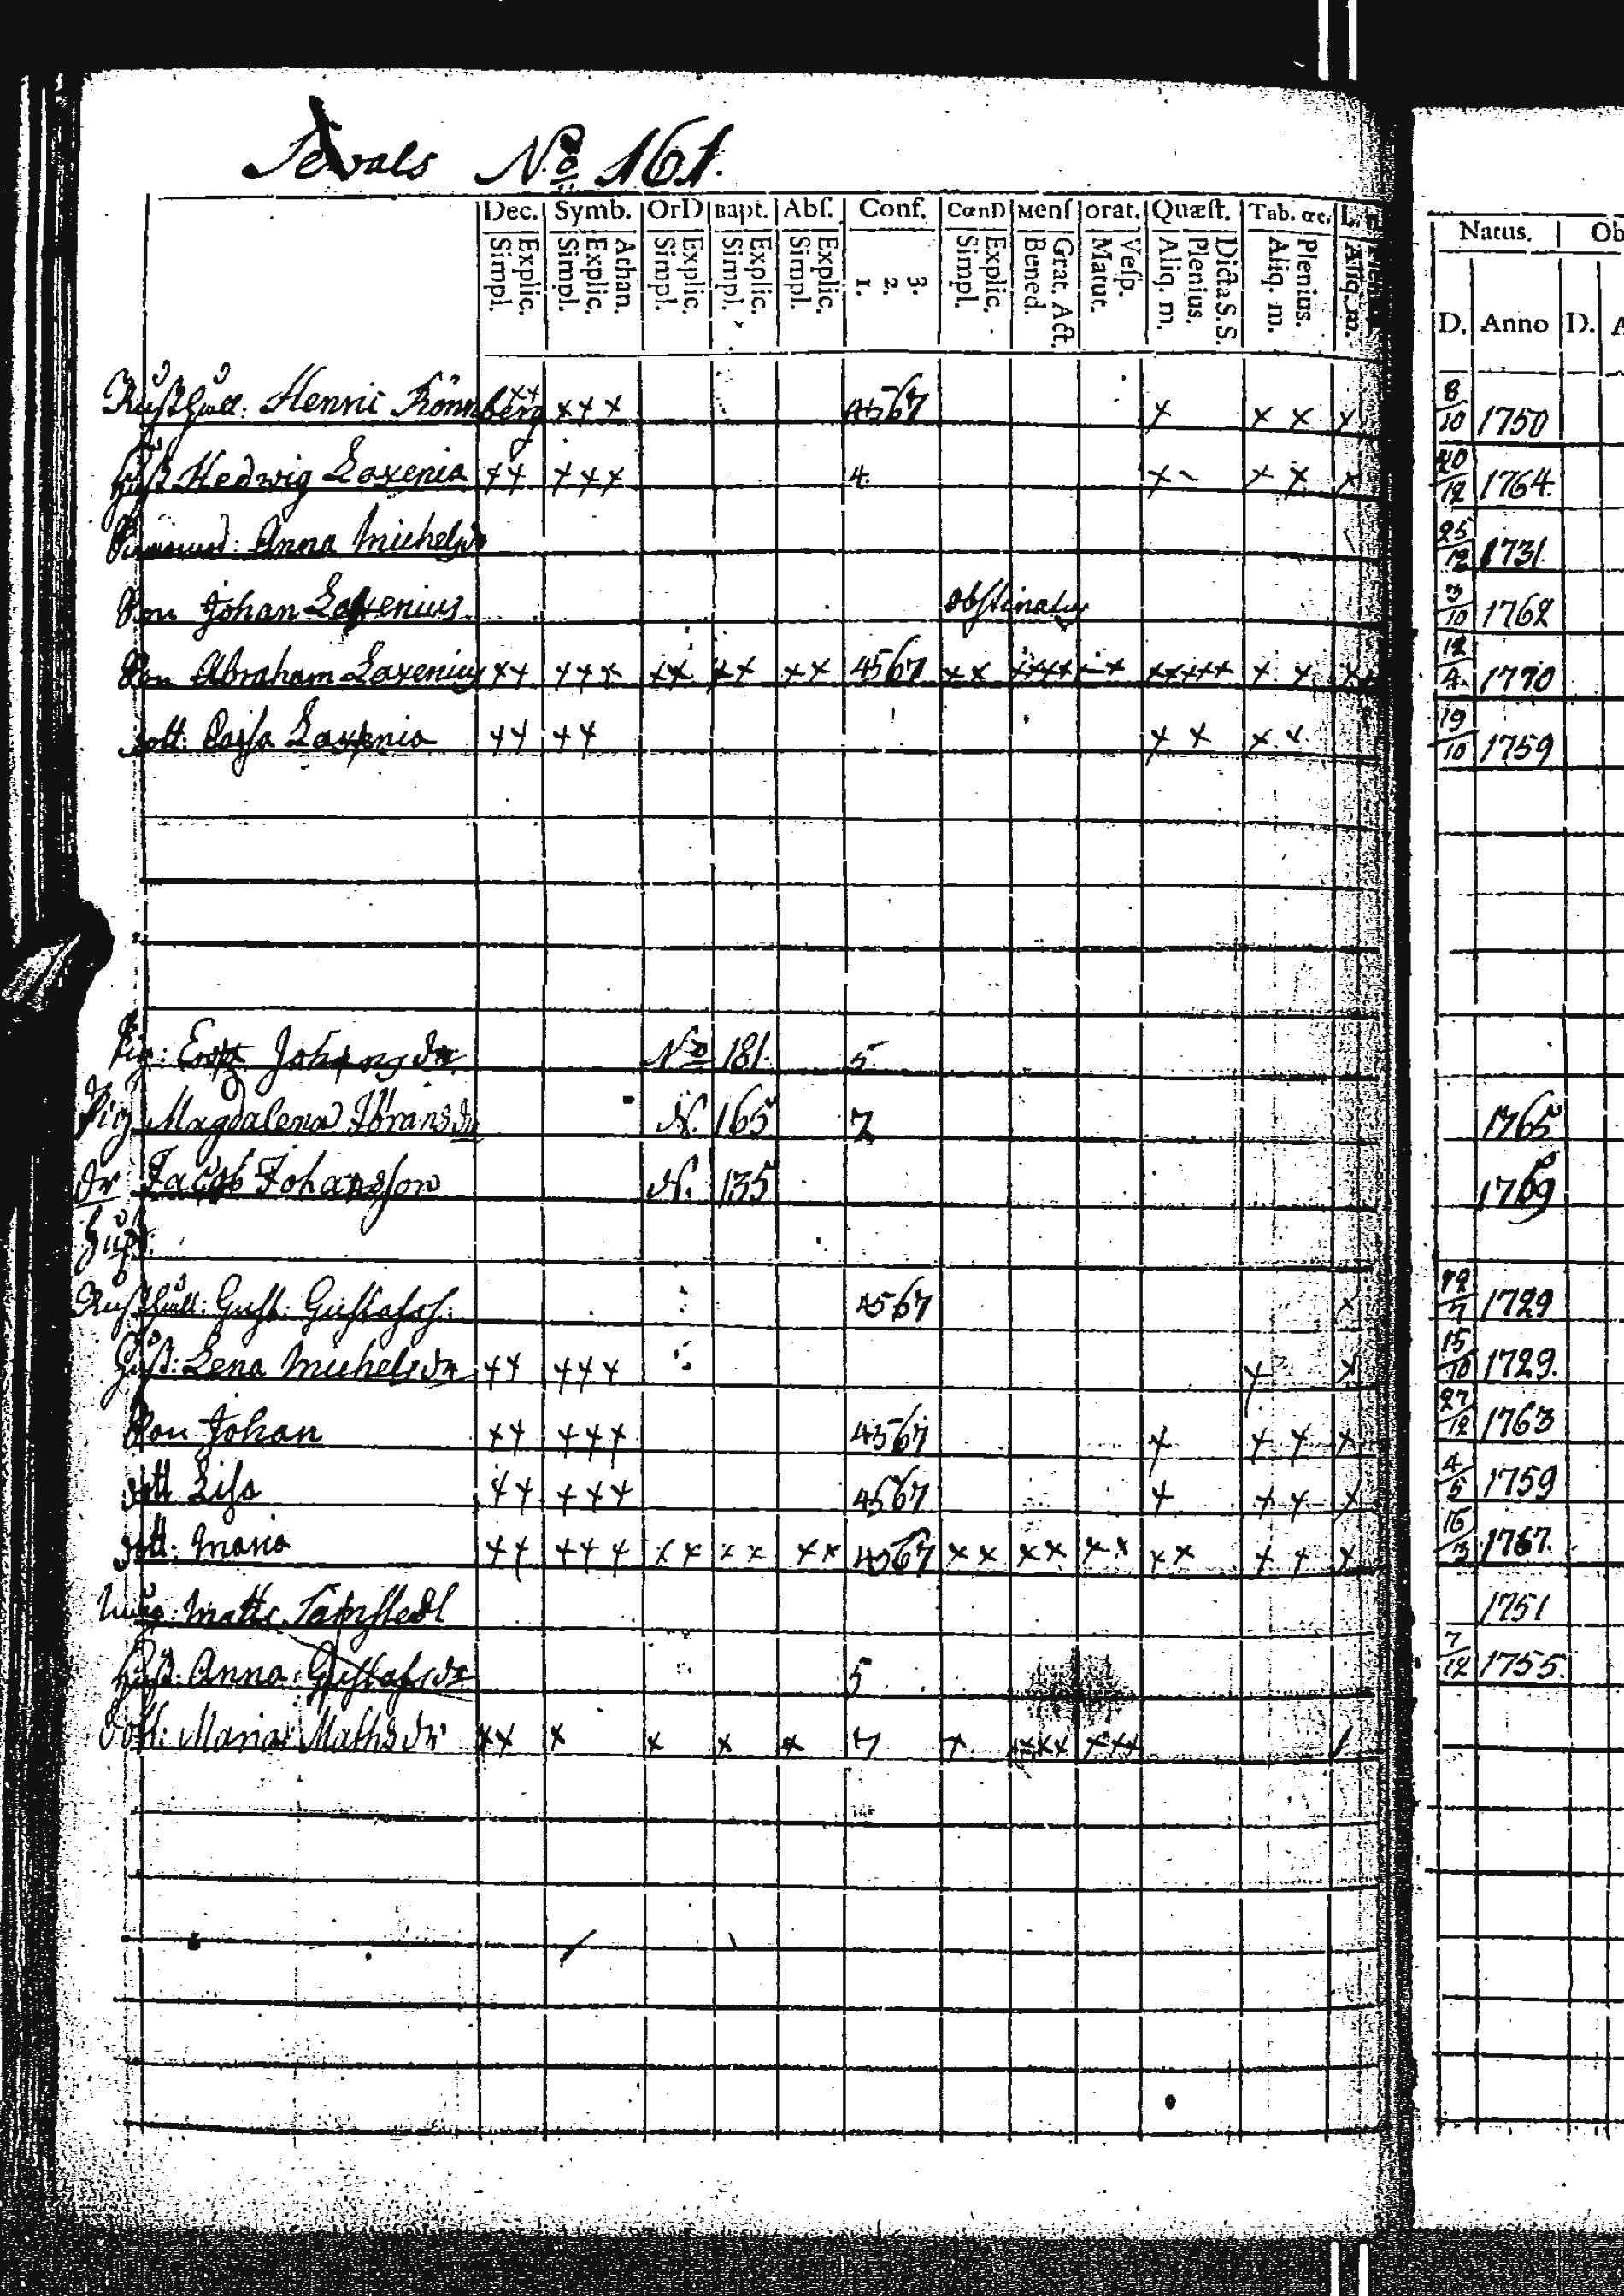 Sexvals No 161.
Dec. Symb. OrD Bapt. Abſ. Conf. CœnD Menſ orat. Quæſt. Tab. œc. L.
Explic. Simpl. Athan. Explic. Simpl. Explic. Simpl. Explic. Simpl. Explic. Simpl. 3. 2. 1. Explic. Simpl. Grat. Act. Bened. Veſp. Matut. Dicta S. S. Plenius. Aliq. m. Plenius. Aliq. m. Aliq. m.
Natus. Ob
D. Anno D. A
Rusthåll: Henric Rönnberg xx xxx 4567 x x x x 8/10 1750
Hust Hedwig Laxenia xx xxx 4. x - x x x 20/12 1764.
Anna Michelsdr 25/12 1731.
Son Johan Laxenius obstinatus 3/10 1762
Son Abraham Laxenius xx xxx xx xx xx 4567 xx xxxx -x xxxxx x x xx 12/4 1770
dott: Cajsa Laxenia xx xx x x x x 19/10 1759
Pig: Johansdr No 181. 5
Pig Magdalena Göransdr N. 165 7 1765
dr Jacob Johansson N. 135 1769
Hust:
Rusthåll: Gust: Gustafss: 4567 x 12/7 1729
Hust: Lena Michelsdr xx xxx x x 15/10 1729.
Son Johan xx xxx 4567 x x x x 27/12 1763
dott Lisa xx xxx 4567 x x x x 4/5 1759
dott: Maria xx xxx xx xx xx 4567 xx xx xx xx x x x 16/3 1767.
Matts 1751
Hust: Anna Gustafsdr 5 7/12 1755.
Dott: Maria Mathsdr xx x x x x 7 x xxxx xxx /